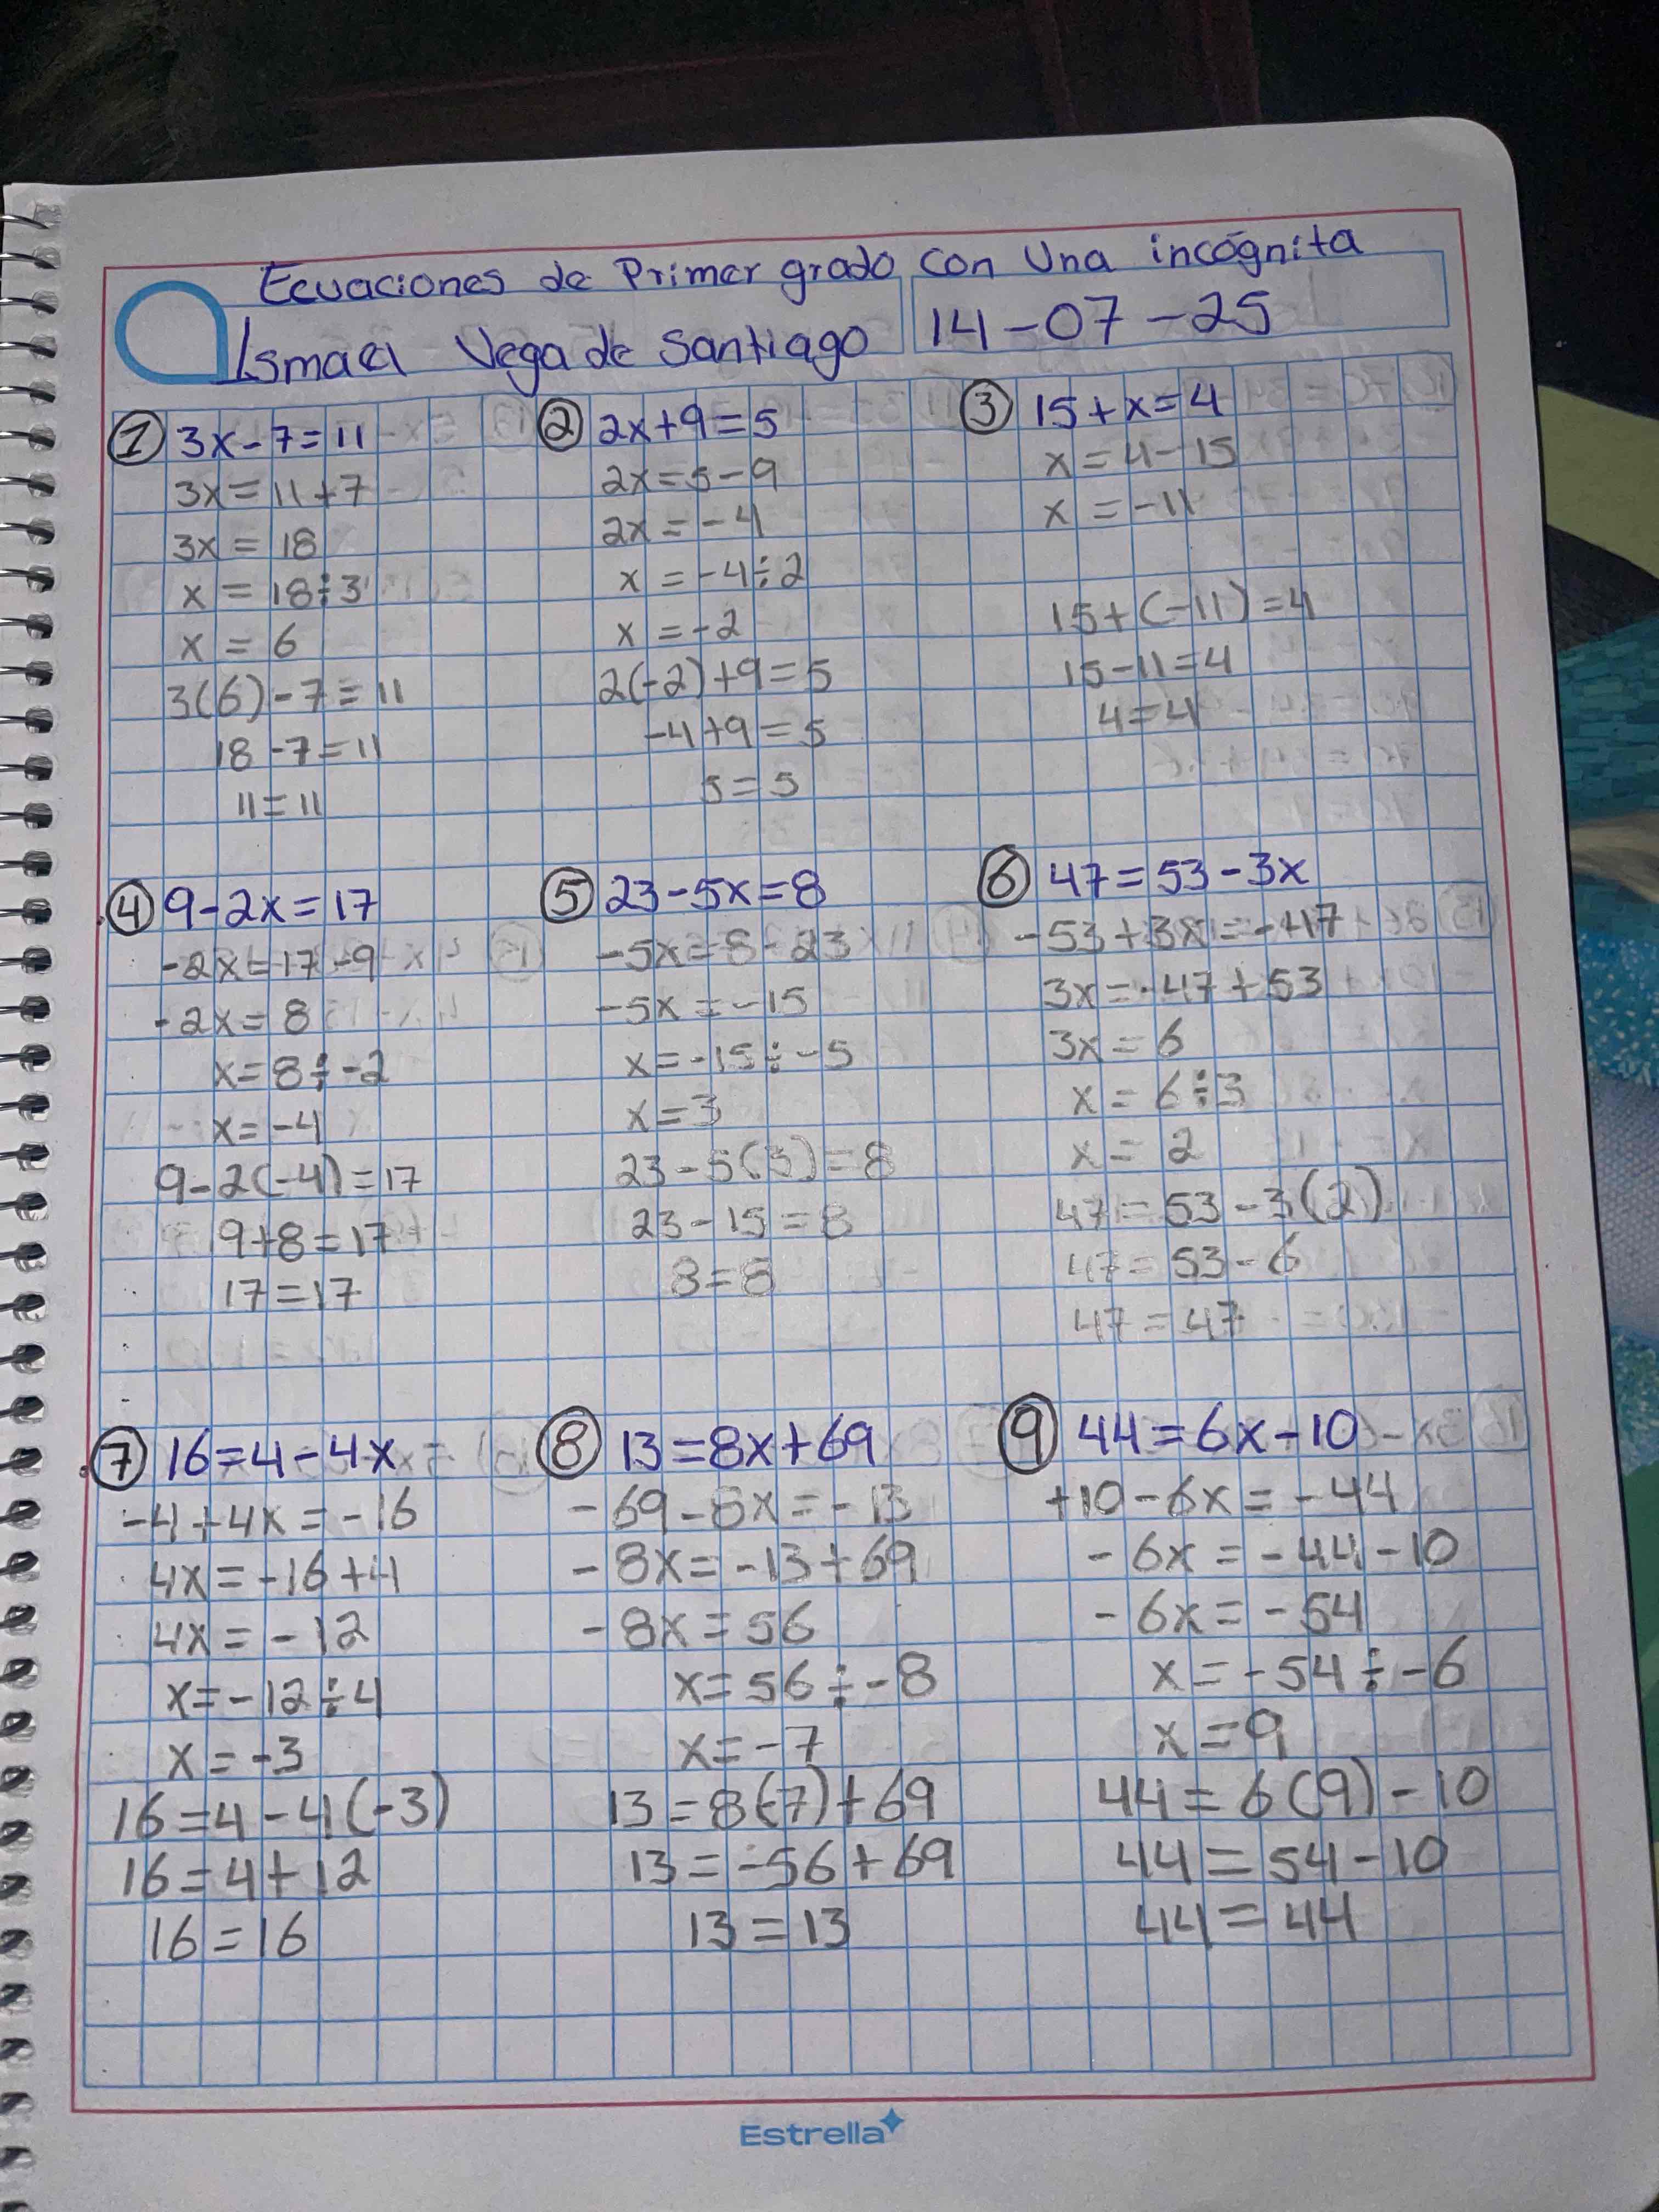 Ecuaciones de Primer grado con Una incógnita
Ismael Vega de Santiago 14-07-25
① 3x-7=11
3x=11+7
3x=18
x=18÷3
x=6
3(6)-7=11
18-7=11
11=11
② 2x+9=5
2x=5-9
2x=-4
x=-4÷2
x=-2
2(-2)+9=5
-4+9=5
5=5
③ 15+x=4
x=4-15
x=-11
15+(-11)=4
15-11=4
4=4
④ 9-2x=17
-2x=17-9
-2x=8
x=8÷-2
x=-4
9-2(-4)=17
9+8=17
17=17
⑤ 23-5x=8
-5x=8-23
-5x=-15
x=-15÷-5
x=3
23-5(3)=8
23-15=8
8=8
⑥ 47=53-3x
-53+3x=-47
3x=-47+53
3x=6
x=6÷3
x=2
47=53-3(2)
47=53-6
47=47
⑦ 16=4-4x
-4+4x=-16
4x=-16+4
4x=-12
x=-12÷4
x=-3
16=4-4(-3)
16=4+12
16=16
⑧ 13=8x+69
-69-8x=-13
-8x=-13+69
-8x=56
x=56÷-8
x=-7
13=8(-7)+69
13=-56+69
13=13
⑨ 44=6x-10
+10-6x=-44
-6x=-44-10
-6x=-54
x=-54÷-6
x=9
44=6(9)-10
44=54-10
44=44
Estrella